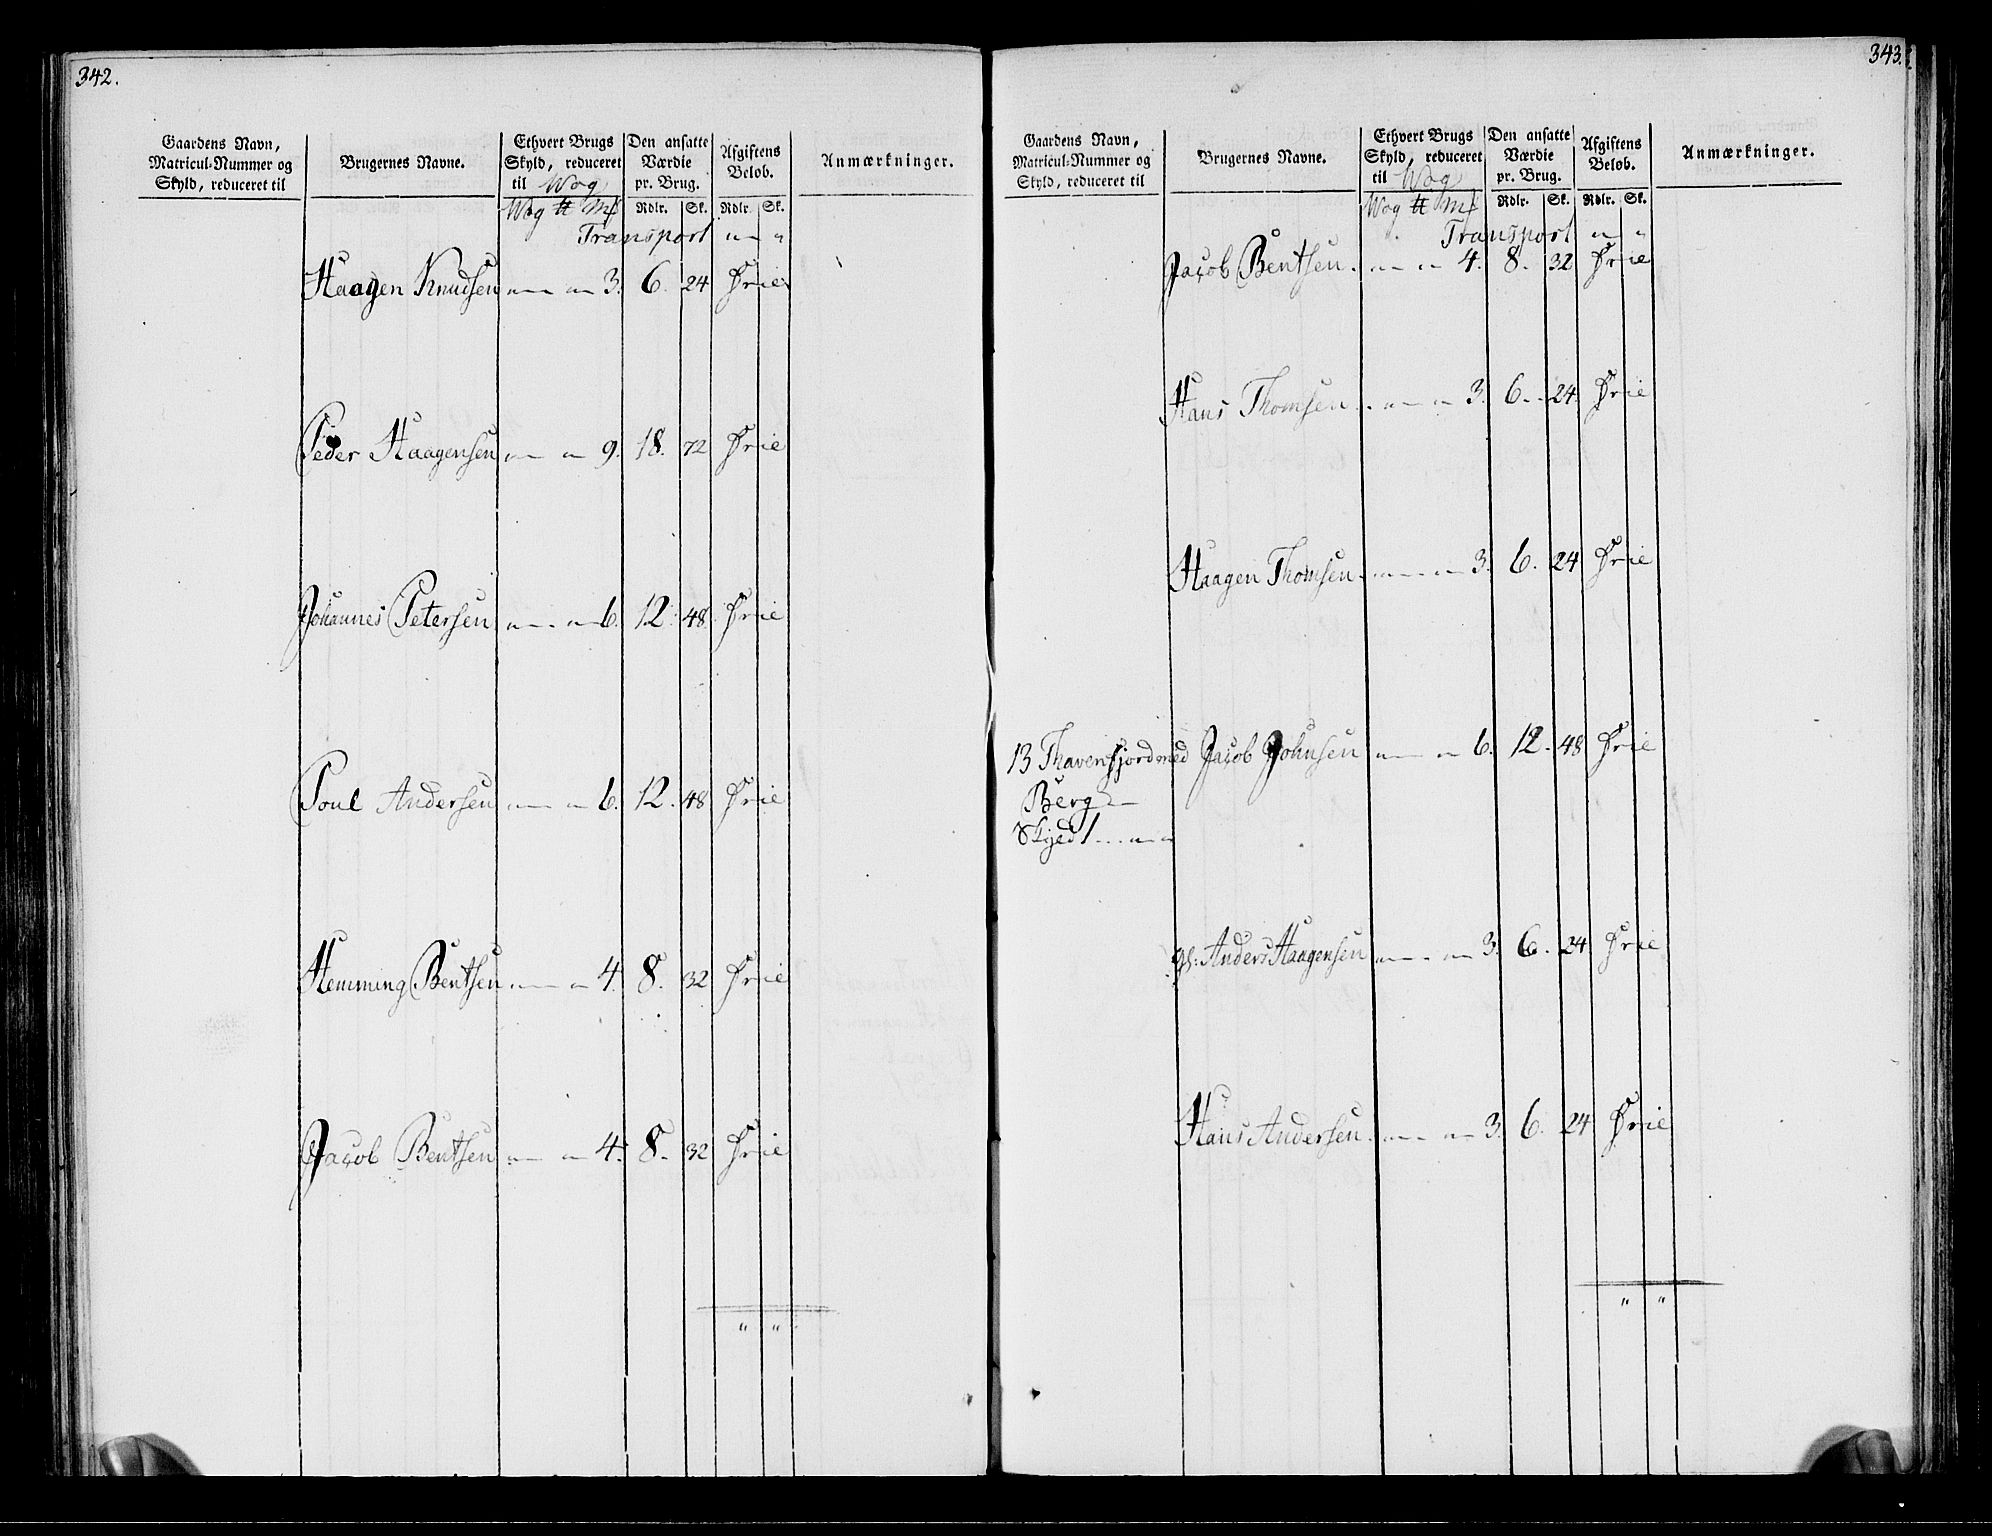 342.
Gaardens Navn, Matricul-Nummer og Skyld, reduceret til
Brugernes Navne.
Ethvert Brugs Skyld, reduceret til Wog
Den ansatte Værdie pr. Brug.
Afgiftens Beløb.
Anmærkninger.
Wog ℔ Mk Rdlr. Sk. Rdlr. Sk.
Transport " "
Haagen Knudsen " " 3. 6. 24 Frie
Peder Haagensen " " 9. 18. 72 Frie
Johannes Petersen " " 6. 12. 48. Frie
Poul Andersen " " 6. 12. 48 Frie
Hemming Bentsen " " 4. 8. 32 Frie
Jacob Bentsen " " 4. 8. 32 Frie
" "
343.
Gaardens Navn, Matricul-Nummer og Skyld, reduceret til
Brugernes Navne.
Ethvert Brugs Skyld, reduceret til Wog
Den ansatte Værdie pr. Brug.
Afgiftens Beløb.
Anmærkninger.
Wog ℔ Mk Rdlr. Sk. Rdlr. Sk.
Transport " "
Jacob Bentsen " " 4. 8. 32 Frie
Hans Thomsen " " 3. 6. 24. Frie
Haagen Thomsen " " 3. 6. 24 Frie
13 med Jacob Johnsen " " 6. 12. 48 Frie
Berg
1 " "
Anders Haagensen " " 3. 6. 24 Frie
Hans Andersen " " 3. 6. 24 Frie
" "